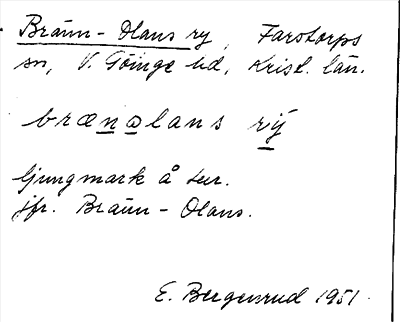 Bräun-Olans ry, Farstorps
sn, V. Göinge hd, Krist. län.
brænalans rÿ
ljungmark å ter.
jfr. Bräun-Olans.
E. Bergensrud 1951.